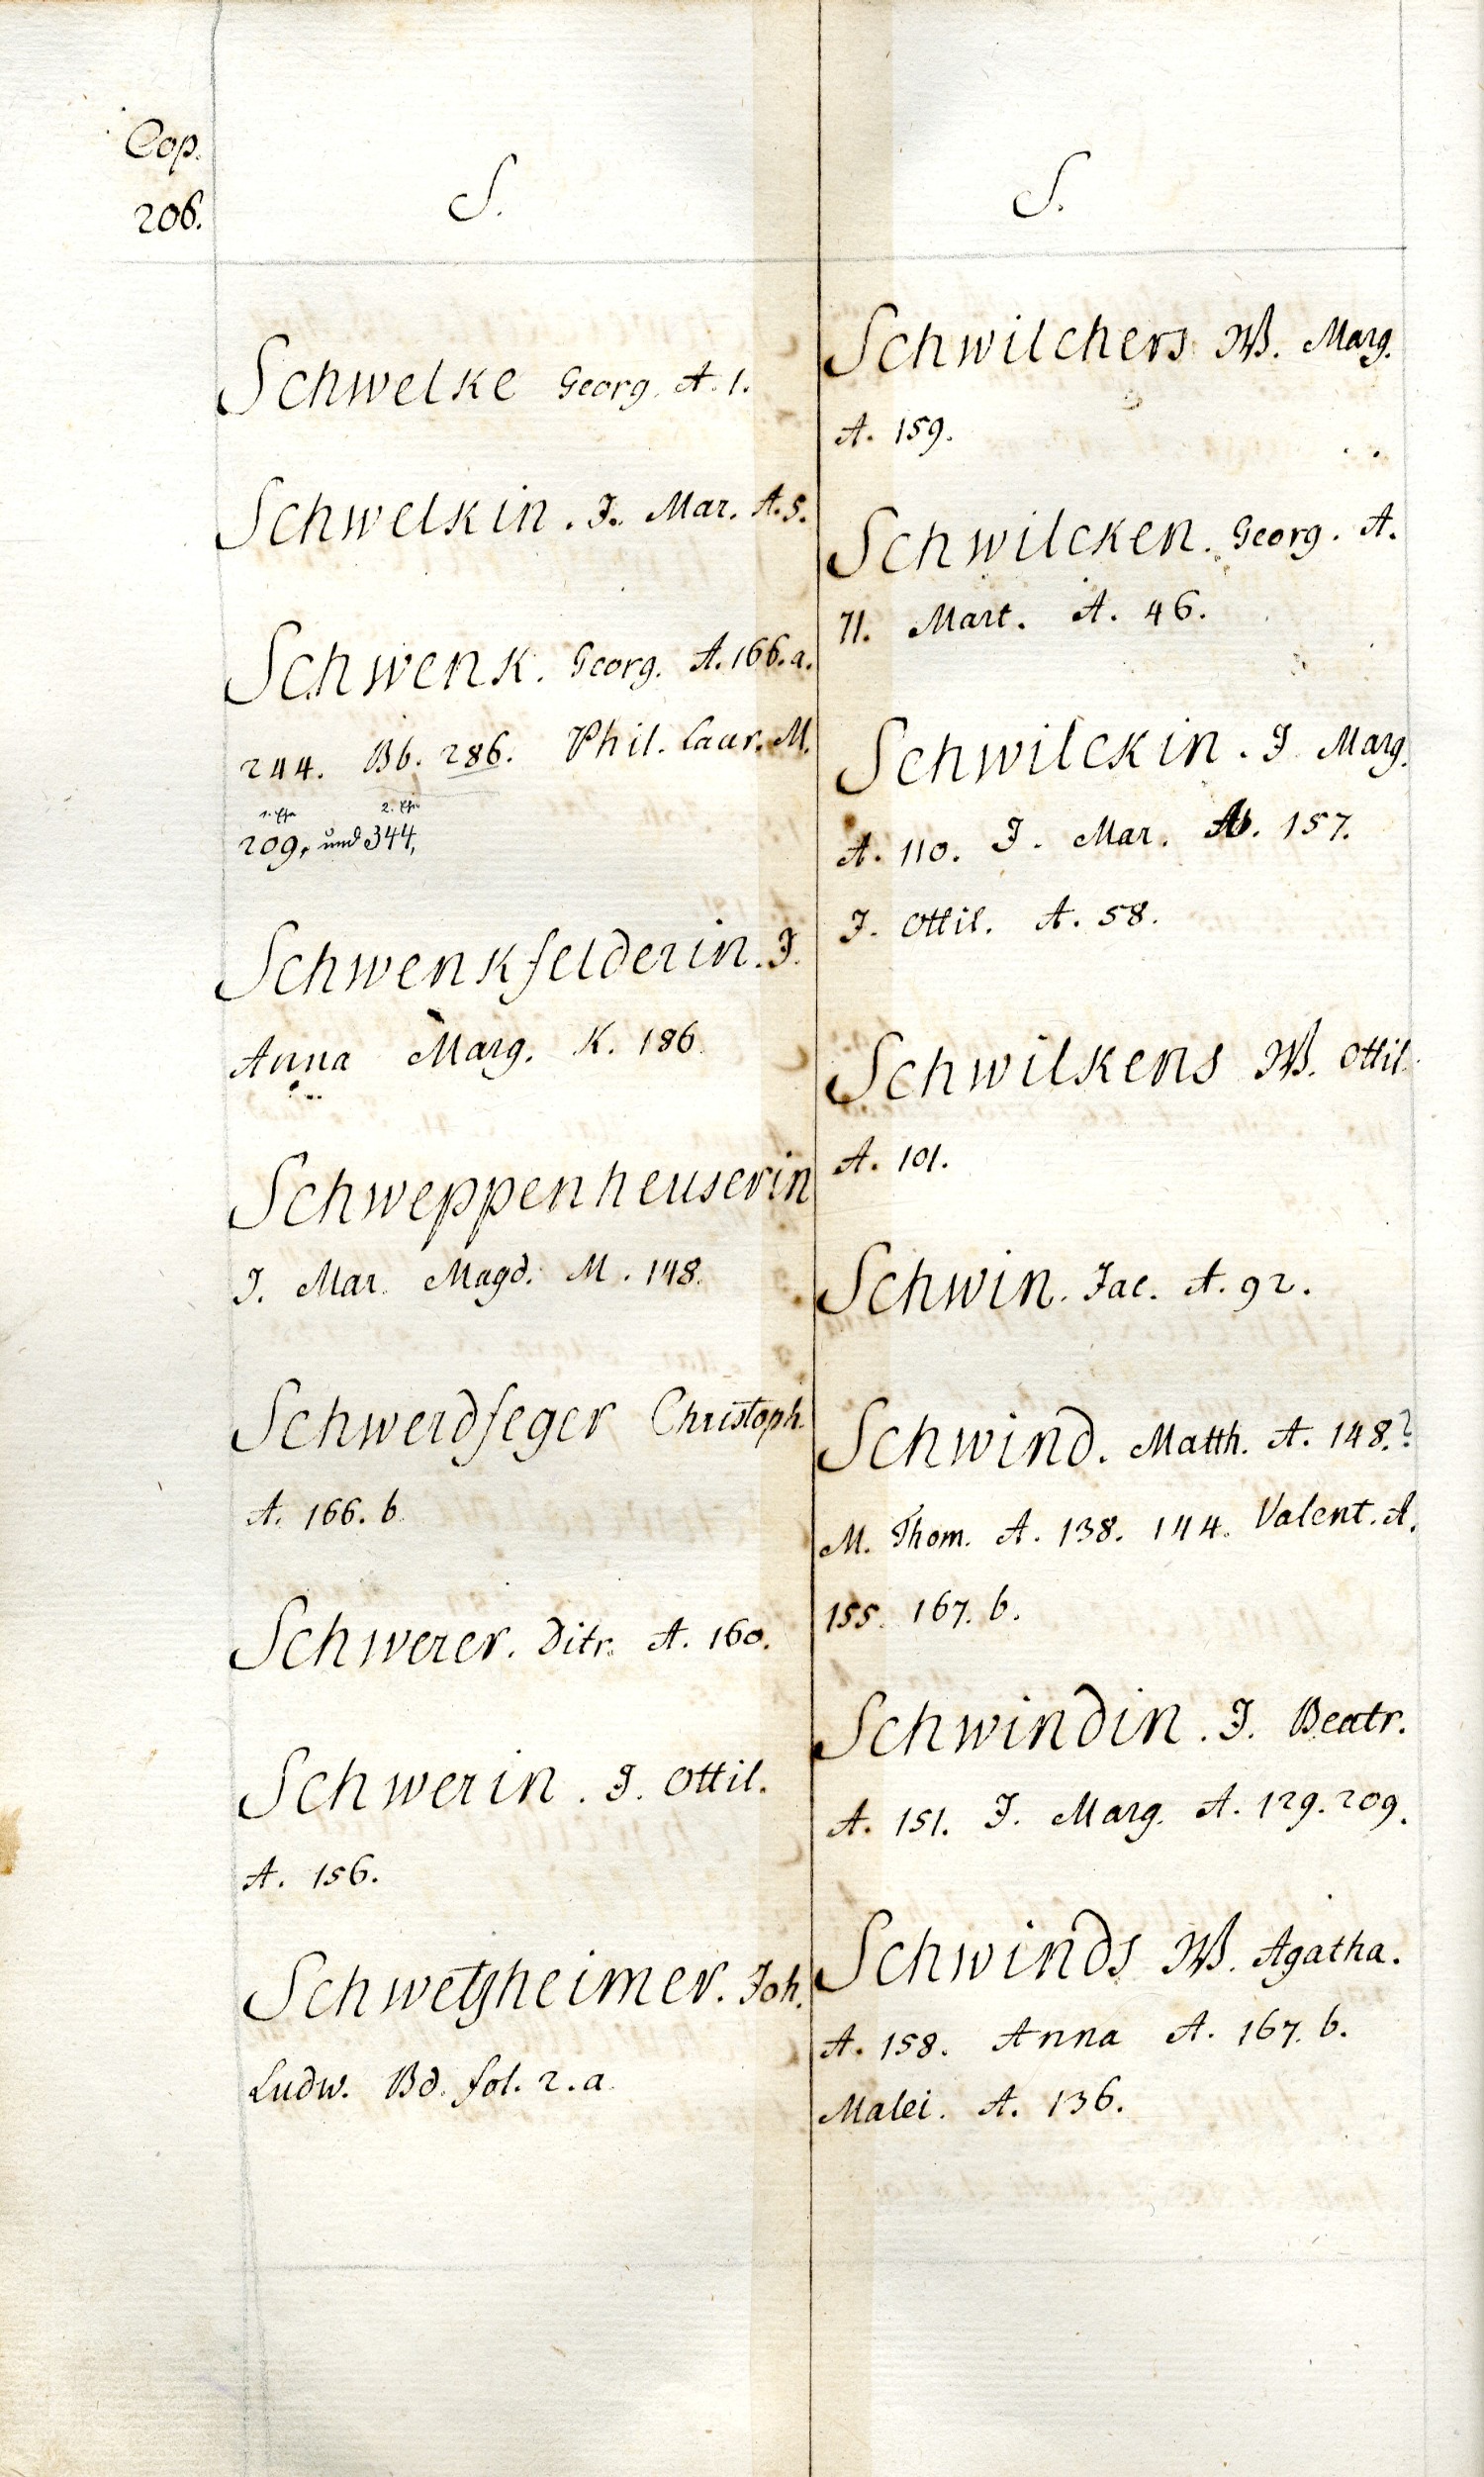 Cop.
206.
S.
Schwelke Georg. A. 1.
Schwelkin. J. Mar. A. 5.
Schwenk. Georg. A. 166. a.
244. Bb. 286. Phil. Laur. M.
1. Ehe 2. Ehe
209, und 344,
Schwenkfelderin. J.
Anna Marg. K. 186.
Schweppenheuserin
J. Mar. Magd. M. 148.
Schwerdfeger Christoph.
A. 166. b.
Schwerer. Ditr. A. 160.
Schwerin. J. Ottil.
A. 156.
Schwetzheimer. Joh.
Ludw. Bd. fol. 2. a.
S.
Schwilchers W. Marg.
A. 159.
Schwilcken. Georg. A.
71. Mart. A. 46.
Schwilckin. J. Marg.
A. 110. J. Mar. A. 157.
J. Ottil. A. 58.
Schwilkens W. Ottil.
A. 101.
Schwin. Jac. A. 92.
Schwind. Matth. A. 148.?
M. Thom. A. 138. 144. Valent. A.
155. 167. b.
Schwindin. J. Beatr.
A. 151. J. Marg. A. 129. 209.
Schwinds W. Agatha.
A. 158. Anna A. 167. b.
Malei. A. 136.